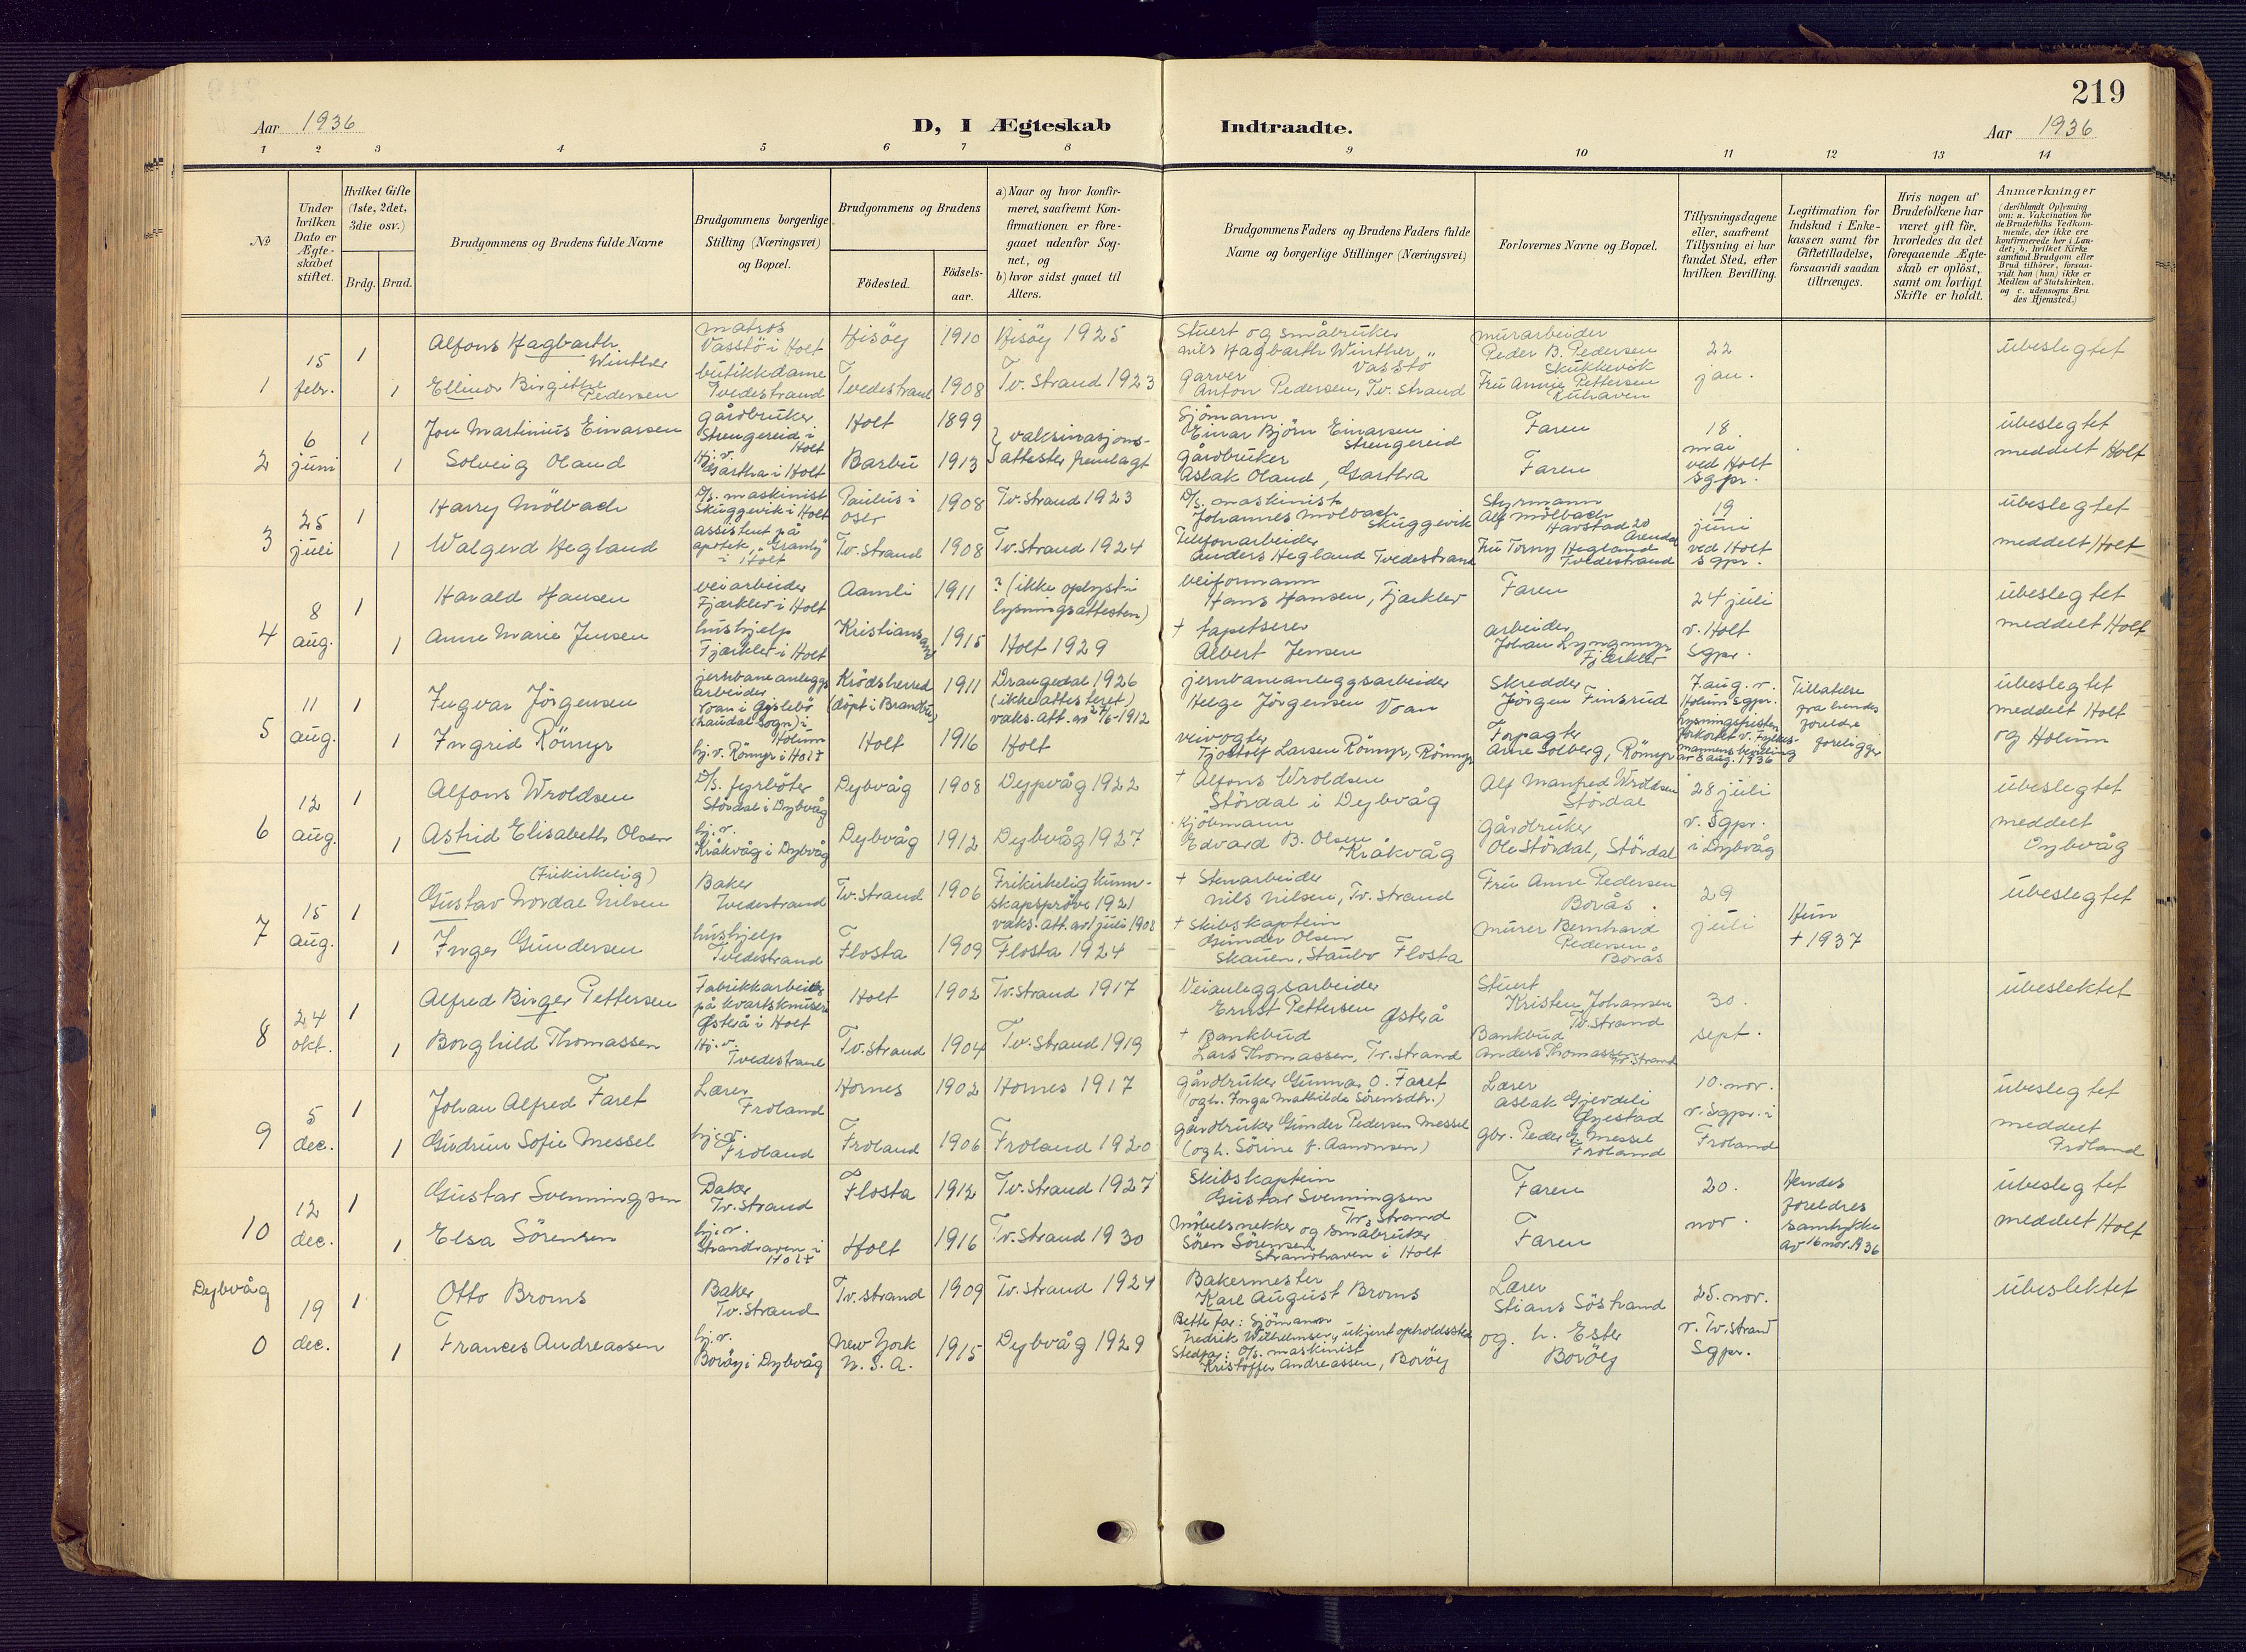 219
Aar 1936
D, I Ægteskab
Indtraadte.
Aar 1936
1 2 3 4 5 6 7 8 9 10 11 12 13 14
No
Under hvilken Dato er Ægteskabet stiftet.
Hvilket Gifte (1ste, 2det, 3die osv.)
Brdg. Brud.
Brudgommens og Brudens fulde Navne
Brudgommens borgerlige Stilling (Næringsvei) og Bopæl.
Brudgommens og Brudens
Födested.
Födsels-aar.
a) Naar og hvor konfirmeret, saafremt Konfirmationen er foregaaet udenfor Sognet, og
b) hvor sidst gaaet til Alters.
Brudgommens Faders og Brudens Faders fulde Navne og borgerlige Stillinger (Næringsvei)
Forlovernes Navne og Bopæl.
Tillysningsdagene eller, saafremt Tillysning ei har fundet Sted, efter hvilken Bevilling.
Legitimation for Indskud i Enkekassen samt for Giftetilladelse, forsaavidt saadan tiltrænges.
Hvis nogen af Brudefolkene har været gift för, hvorledes da det foregaaende Ægteskab er oplöst, samt om lovligt Skifte er holdt.
Anmærkninger (deriblandt Oplysning om: a. Vakcination for de Brudefolks Vedkommende, der ikke ere konfirmerede her i Landet; b. hvilket Kirkesamfund Brudgom eller Brud tilhörer, forsaavidt han (hun) ikke er Medlem af Statskirken. og c. udensogns Brudes Hjemsted.)
1
15 febr.
1
Alfons Hagbarth Winther
matros
Vasstö i Holt
Hisöy
1910
Hisöy 1925
Stuert og småbruker
Nils Hagbarth Winther, Vasstö
murarbeider
Peder B. Pedersen
Skukkevik
22 jan.
ubeslegtet
1
Ellinor Birgithe Pedersen
butikkdame
Tvedestrand
Tvedestrand
1908
Tv. strand 1923
Garver
Anton Pedersen, Tv. strand
Fru Annie Pettersen
2
6 juni
1
Jon Martinius Einarsen
gårdbruker
Strengereid i Holt
Holt
1899
vaksinasjons-
attester fremlagt
Sjömann
Einar Björn Einarsen
Strengereid
Faren
18 mai
ved Holt sgpr.
ubeslegtet
meddelt Holt
1
Solveig Oland
hj. v.
Gartha i Holt
Barbu
1913
gårdbruker
Aslak Oland, Gartha
Faren
3
25 juli
1
Harry Mölbach
D/s. maskinist
Skuggevik i Holt
Paulus i Oslo
1908
Tv. strand 1923
D/s. maskinist
Johannes Mölbach
Skuggevik
Styrmann
Alf Mölbach
Havstad 20
Arendal
19 juni
ved Holt sgpr.
ubeslegtet
meddelt Holt
1
Walgerd Hegland
assistent på
apotek, "Granly"
i Holt
Tv. strand
1908
Tv. strand 1924
Telefonarbeider
Anders Hegland Tvedestrand
Fru Torny Hegland
Tvedestrand
4
8 aug.
1
Harald Hansen
veiarbeider
Fjærkler i Holt
Aamli
1911
? (ikke oplyst i
lysningsattesten)
Veiformann
Hans Hansen, Fjærkler
Faren
24 juli
v. Holt
sgpr.
ubeslegtet
meddelt Holt
1
Anne Marie Jensen
hushjelp
Fjærkler i Holt
Kristiansand
1915
Holt 1929
+ tapetserer
Albert Jensen
arbeider
Johan Lyngmyr
Fjærkler
5
11 aug.
1
Ingvar Jörgensen
jernbaneanleggs
arbeider
Voan i Öislebö
(Laudal sogn) i
Holum
Krödsherred
(döpt i Brandbu)
1911
Drangedal 1926
(ikke attestert)
vaks. att. av 27/6-1912
jernbaneanleggsarbeider
Helge Jörgensen Voan
Skredder
Jörgen Finsrud
7 aug. v.
Holum sgpr.
lysningsfristen
forkortet v. Fylkes-
mannens bevilling
av 8 aug. 1936
Tillatelse
fra hendes
foreldre
foreligger
ubeslegtet
meddelt Holt
og Holum
1
Ingrid Römyr
hj. v. Römyr i Holt
Holt
1916
Holt
veivogter
Tjostolf Larsen Römyr, Römyr
Forpagter
Arne Solberg, Römyr
6
12 aug.
1
Alfons Wroldsen
D/s. fyrböter
Stördal i Dybvåg
Dybvåg
1908
Dypvåg 1922
+ Alfons Wroldsen
Stördal i Dybvåg
Alf Manfred Wroldsen
Stördal
28 juli
v. sgpr.
i Dybvåg
ubeslegtet
meddelt
Dybvåg
1
Astrid Elisabeth Olsen
hj. v.
Kråkvåg i Dybvåg
Dybvåg
1912
Dybvåg 1927
Kjöbmann
Edvard B. Olsen
Kråkvåg
gårdbruker
Ole Stördal, Stördal
7
15 aug.
1
(Frikirkelig)
Gustav Nordal Nilsen
Baker
Tvedestrand
Tv. strand
1906
Frikirkelig kunn-
skapspröve 1921
vaks. att. av 1 juli 1908
+ Stenarbeider
Nils Nilsen, Tv. strand
Fru Anne Pedersen
Borås
29 juli
Hun
+ 1937
ubeslegtet
1
Inger Gundersen
hushjelp
Tvedestrand
Flosta
1909
Flosta 1924
+ Skibskaptein
Gunder Olsen
Skauen, Staubo Flosta
murer Bernhard
Pedersen
Borås
8
24 okt.
1
Alfred Birger Pettersen
Fabrikkarbeider
på kvartsknuseri
Österå i Holt
Holt
1902
Tv. strand 1917
Veianleggsarbeider
Ernst Pettersen Österå
Stuert
Kristen Johansen
Tv. strand
30. sept.
ubeslektet
1
Borghild Thomassen
Hj. v.
Tvedestrand
Tv. strand
1904
Tv. strand 1919
+ Bankbud
Lars Thomassen, Tv. strand
Bankbud
Anders Thomassen
Tv. strand
9
5 dec.
1
Johan Alfred Faret
Lærer
Froland
Hornes
1902
Hornes 1917
gårdbruker Gunnar O. Faret
(og h. Inga Mathilde Sörensdtr.)
Lærer
Aslak Gjerdeli
Gjestad
10. nov.
v. sgpr. i
Froland
ubeslegtet
meddelt
Froland
1
Gudrun Sofie Messel
hj. v.
Froland
Froland
1906
Froland 1920
gårdbruker Gunder Pedersen Messel
(og h. Sörine f. Aanonsen)
gbr. Peder G. Messel
Froland
10
12 dec.
1
Gustav Svenningsen
Baker
Tv. strand
Flosta
1912
Tv. strand 1927
Skibskaptein
Gustav Svenningsen
Tv. strand
Faren
20. nov.
Hendes
foreldres
samtykke
av 16 nov. 1936
ubeslegtet
meddelt Holt
1
Elsa Sörensen
hj. v.
Strandhaven i
Holt
Holt
1916
Tv. strand 1930
Möbelsnekker og småbruker
Sören Sörensen
Strandhaven i Holt
Faren
Dybvåg
0
19 dec.
1
Otto Broms
Baker
Tv. strand
Tv. strand
1909
Tv. strand 1924
Bakermester
Karl August Broms
Lærer
Stians Söstrand
25. nov.
v. Tv. strand
sgpr.
ubeslektet
1
Frances Andreassen
hj. v.
Boröy i Dybvåg
New York
U. S. A.
1915
Dybvåg 1929
Rette far: Sjömann
Fredrik Wilhelmsen, ukjent opholdssted
Stedfar: D/s. maskinist
Kristoffer Andreassen, Boröy
og h. Ester
Boröy